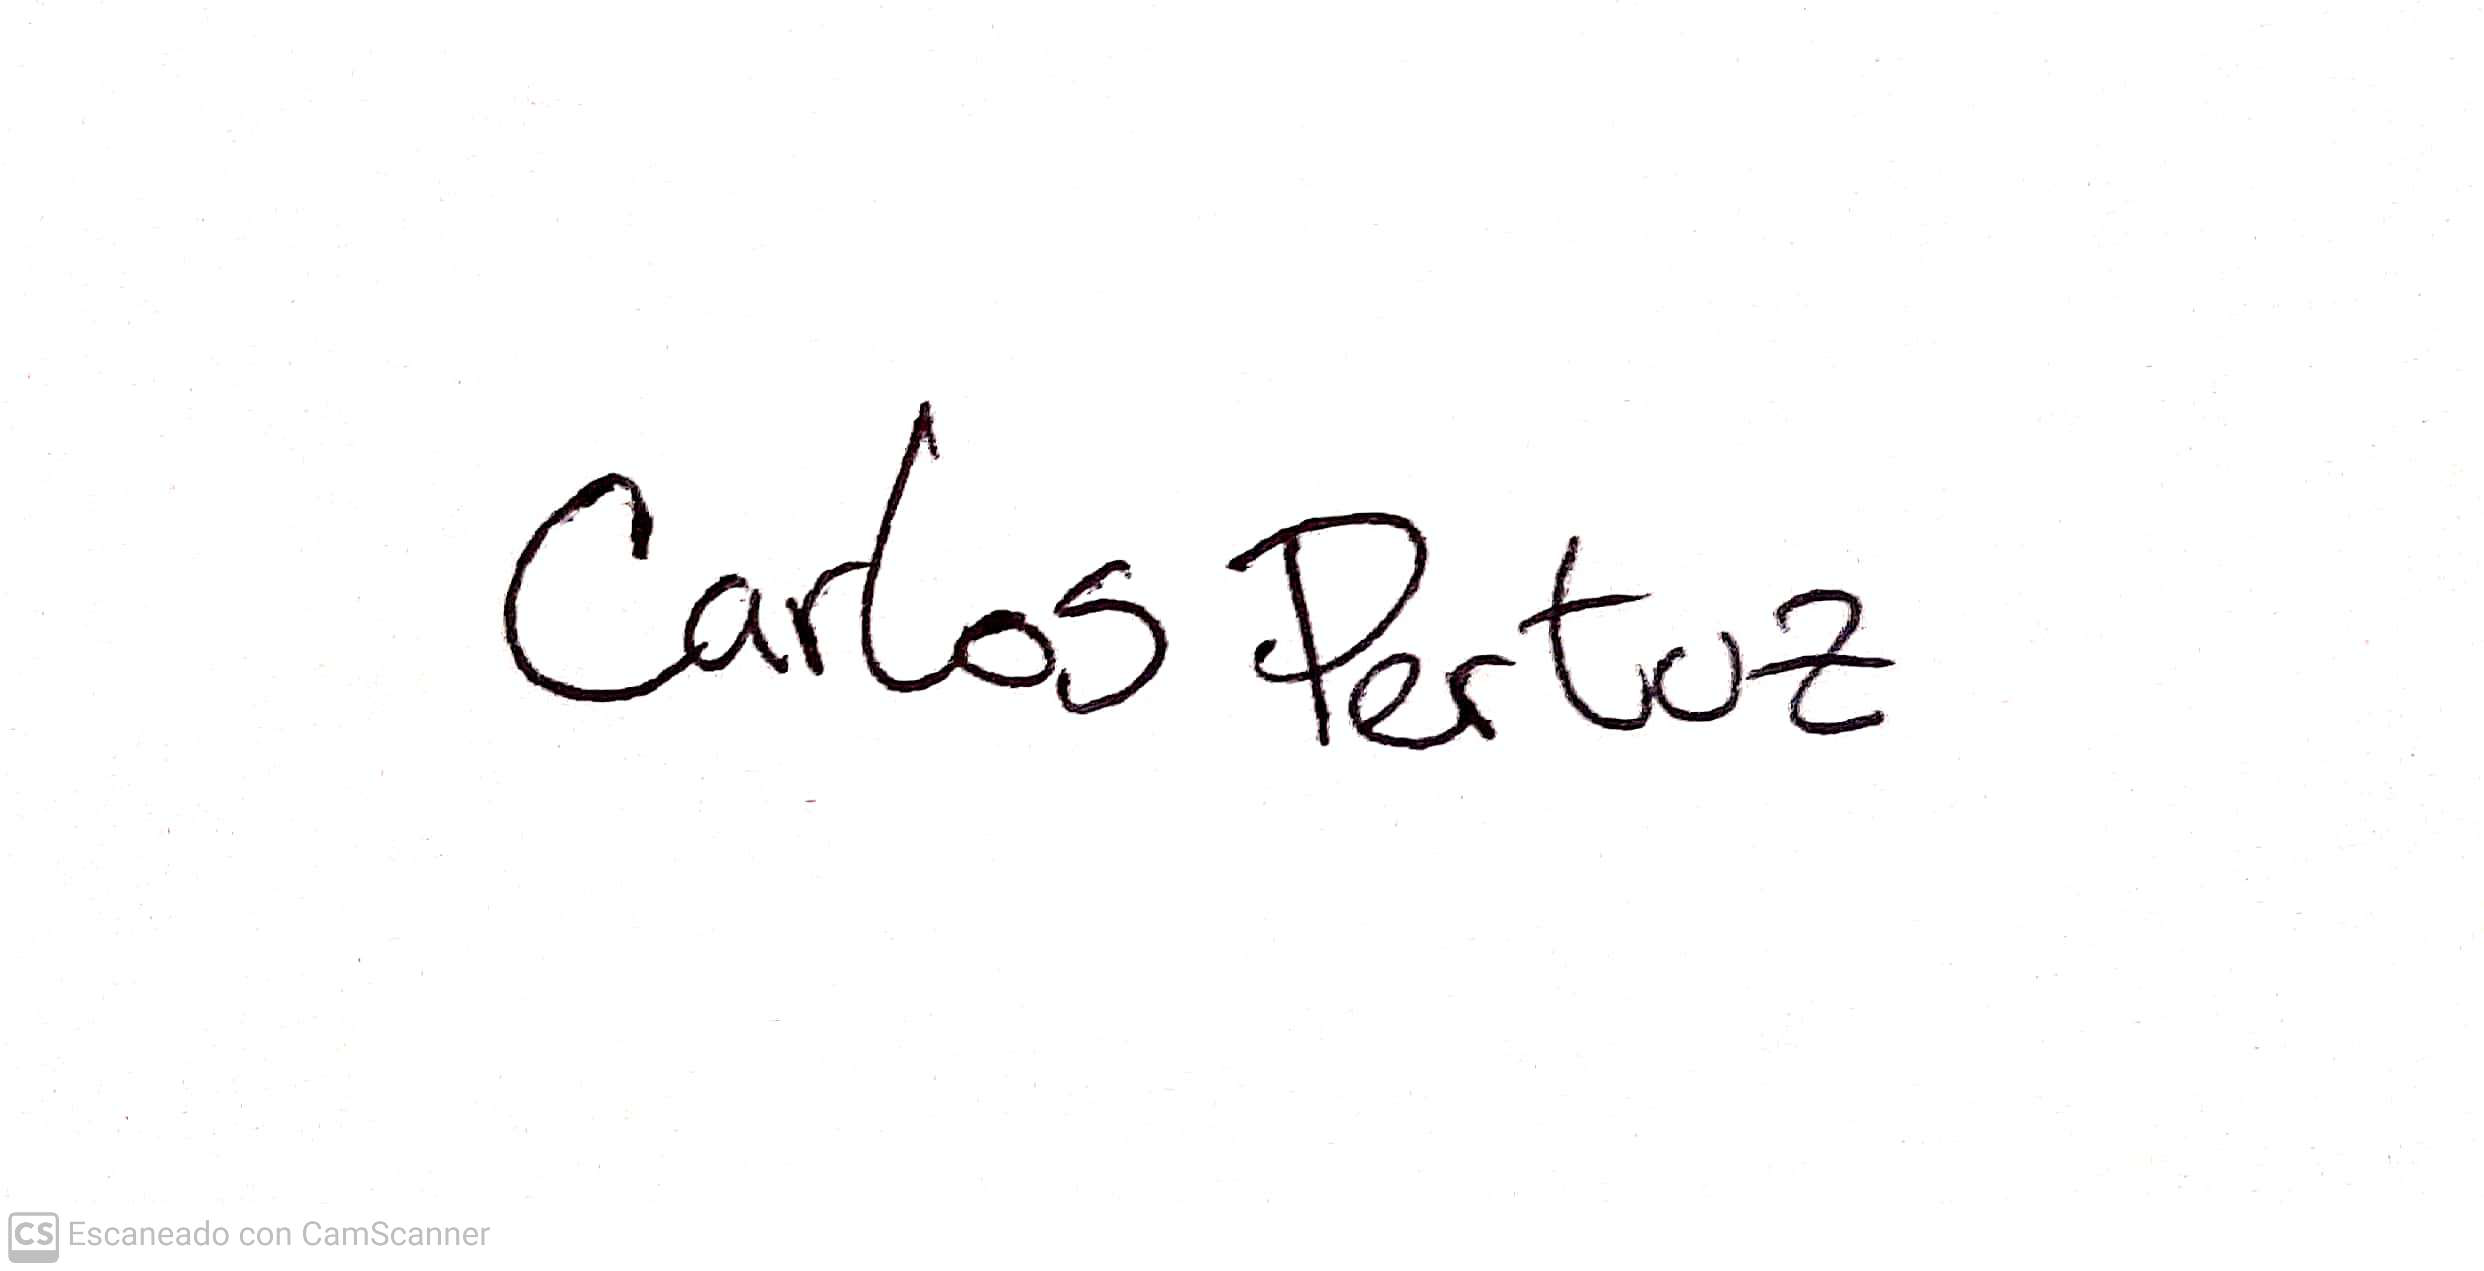 Carlos Pertuz
CS Escaneado con CamScanner